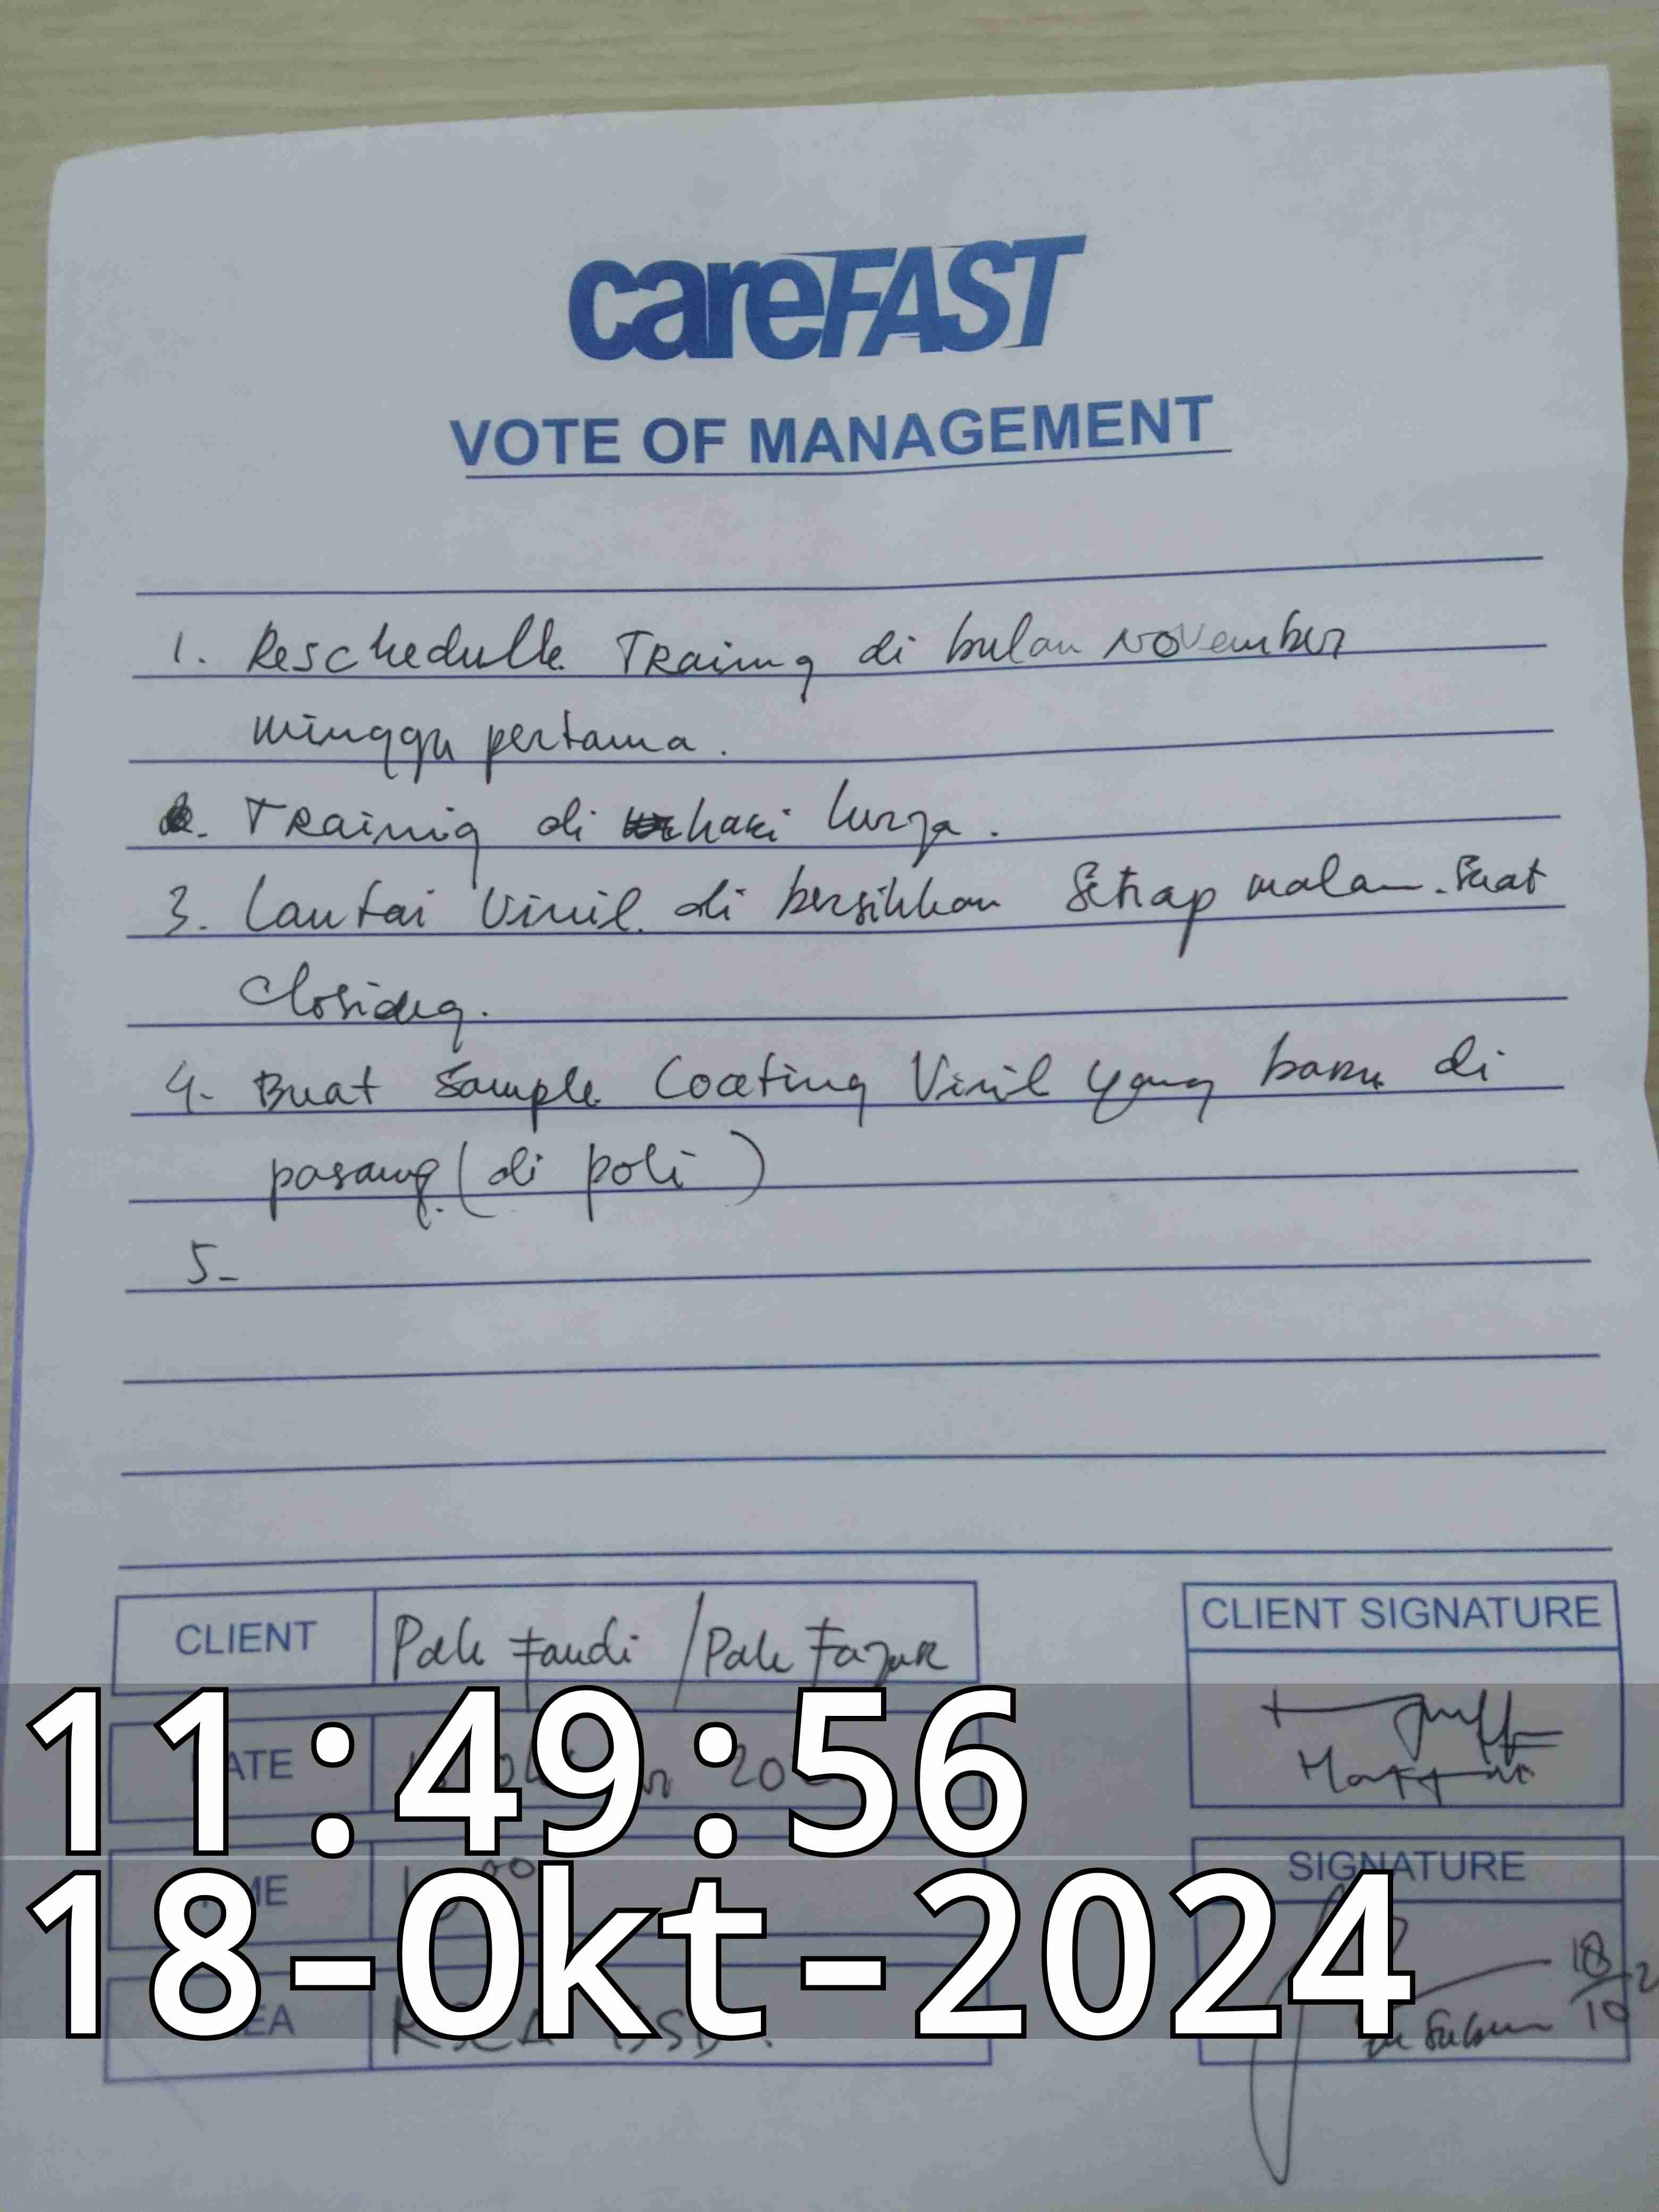 careFAST
VOTE OF MANAGEMENT
1. Reschedulle Training di bulan November
minggu pertama.
2. Training di hari kerja.
3. Lantai Vinil di bersihkan Setiap malam. Saat
Closing.
4- Buat Sample Coating Vinil yang baru di
pasang. (di poli)
5-
CLIENT Pak Fandi / Pak Fazar
CLIENT SIGNATURE
11:49:56
SIGNATURE
18-Okt-2024
18
10
BSD.